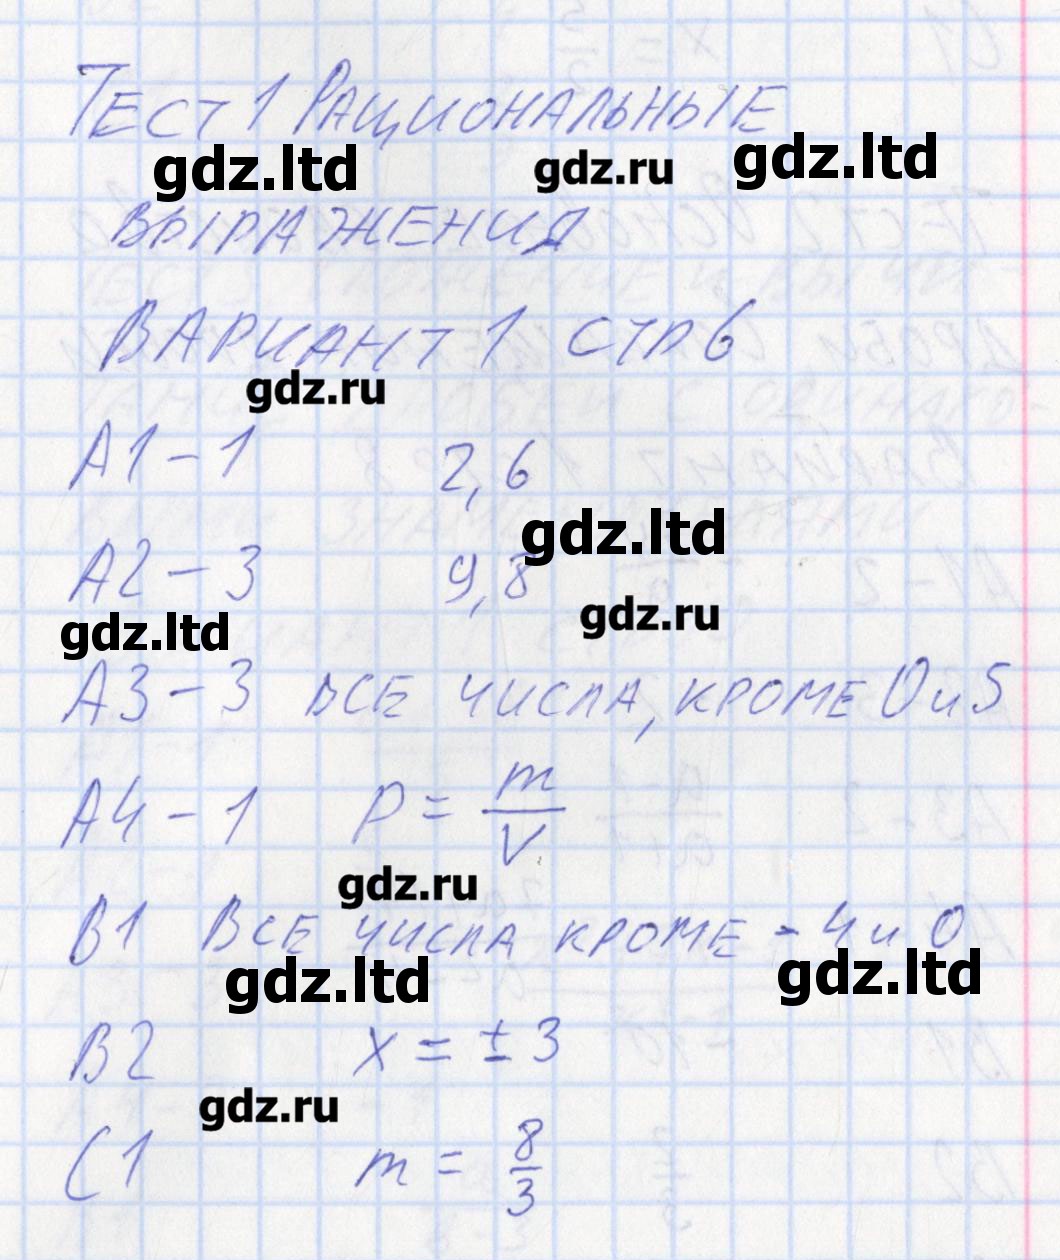 Тест 1 Рациональные
gdz.ltd gdz.ru gdz.ltd
выражения
Вариант 1 стр 6
gdz.ru
А1 - 1 2,6
gdz.ltd
А2 - 3 9,8
gdz.ltd gdz.ru
А3 - 3 все числа, кроме 0 и 5
А4 - 1 P = m/V
gdz.ru
В1 Все числа кроме - 4 и 0
gdz.ltd gdz.ltd
В2 x = ± 3
gdz.ru
С1 m = 8/3